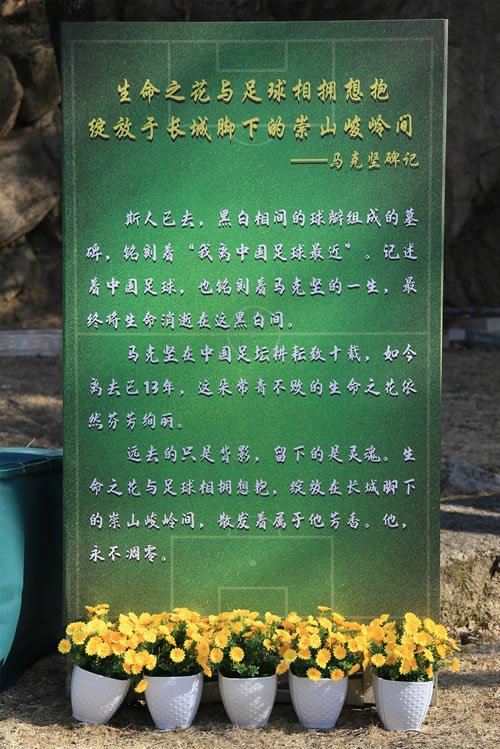 生命之花与足球相拥想抱
绽放于长城脚下的崇山峻岭间
——马克坚碑记
斯人已去，黑白相间的球瓣组成的墓
碑，铭刻着“我离中国足球最近”。记述
着中国足球，也铭刻着马克坚的一生，最
终将生命消逝在这黑白间。
马克坚在中国足坛耕耘数十载，如今
离去已13年，这朵常青不败的生命之花依
然芬芳绚丽。
远去的只是背影，留下的是灵魂。生
命之花与足球相拥想抱，绽放在长城脚下
的崇山峻岭间，散发着属于他芳香。他，
永不凋零。